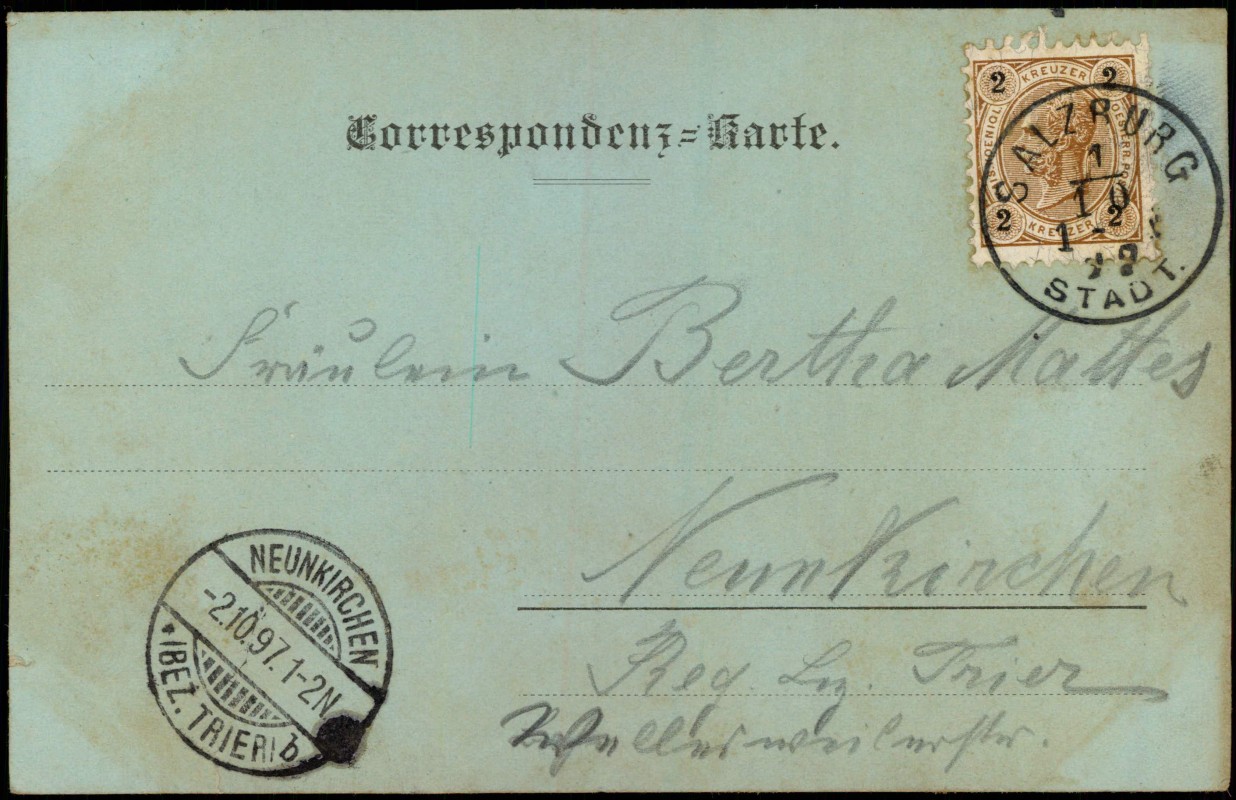 Correspondenz=Karte.
2 KREUZER 2
2 KREUZER 2
SALZBURG
1
10
STADT.
Fräulein Bertha Mattes
Neunkirchen
Reg. Bz. Trier
Wellesweilerstr.
NEUNKIRCHEN
-2.10.97.1-2N.
*(BEZ. TRIER) b